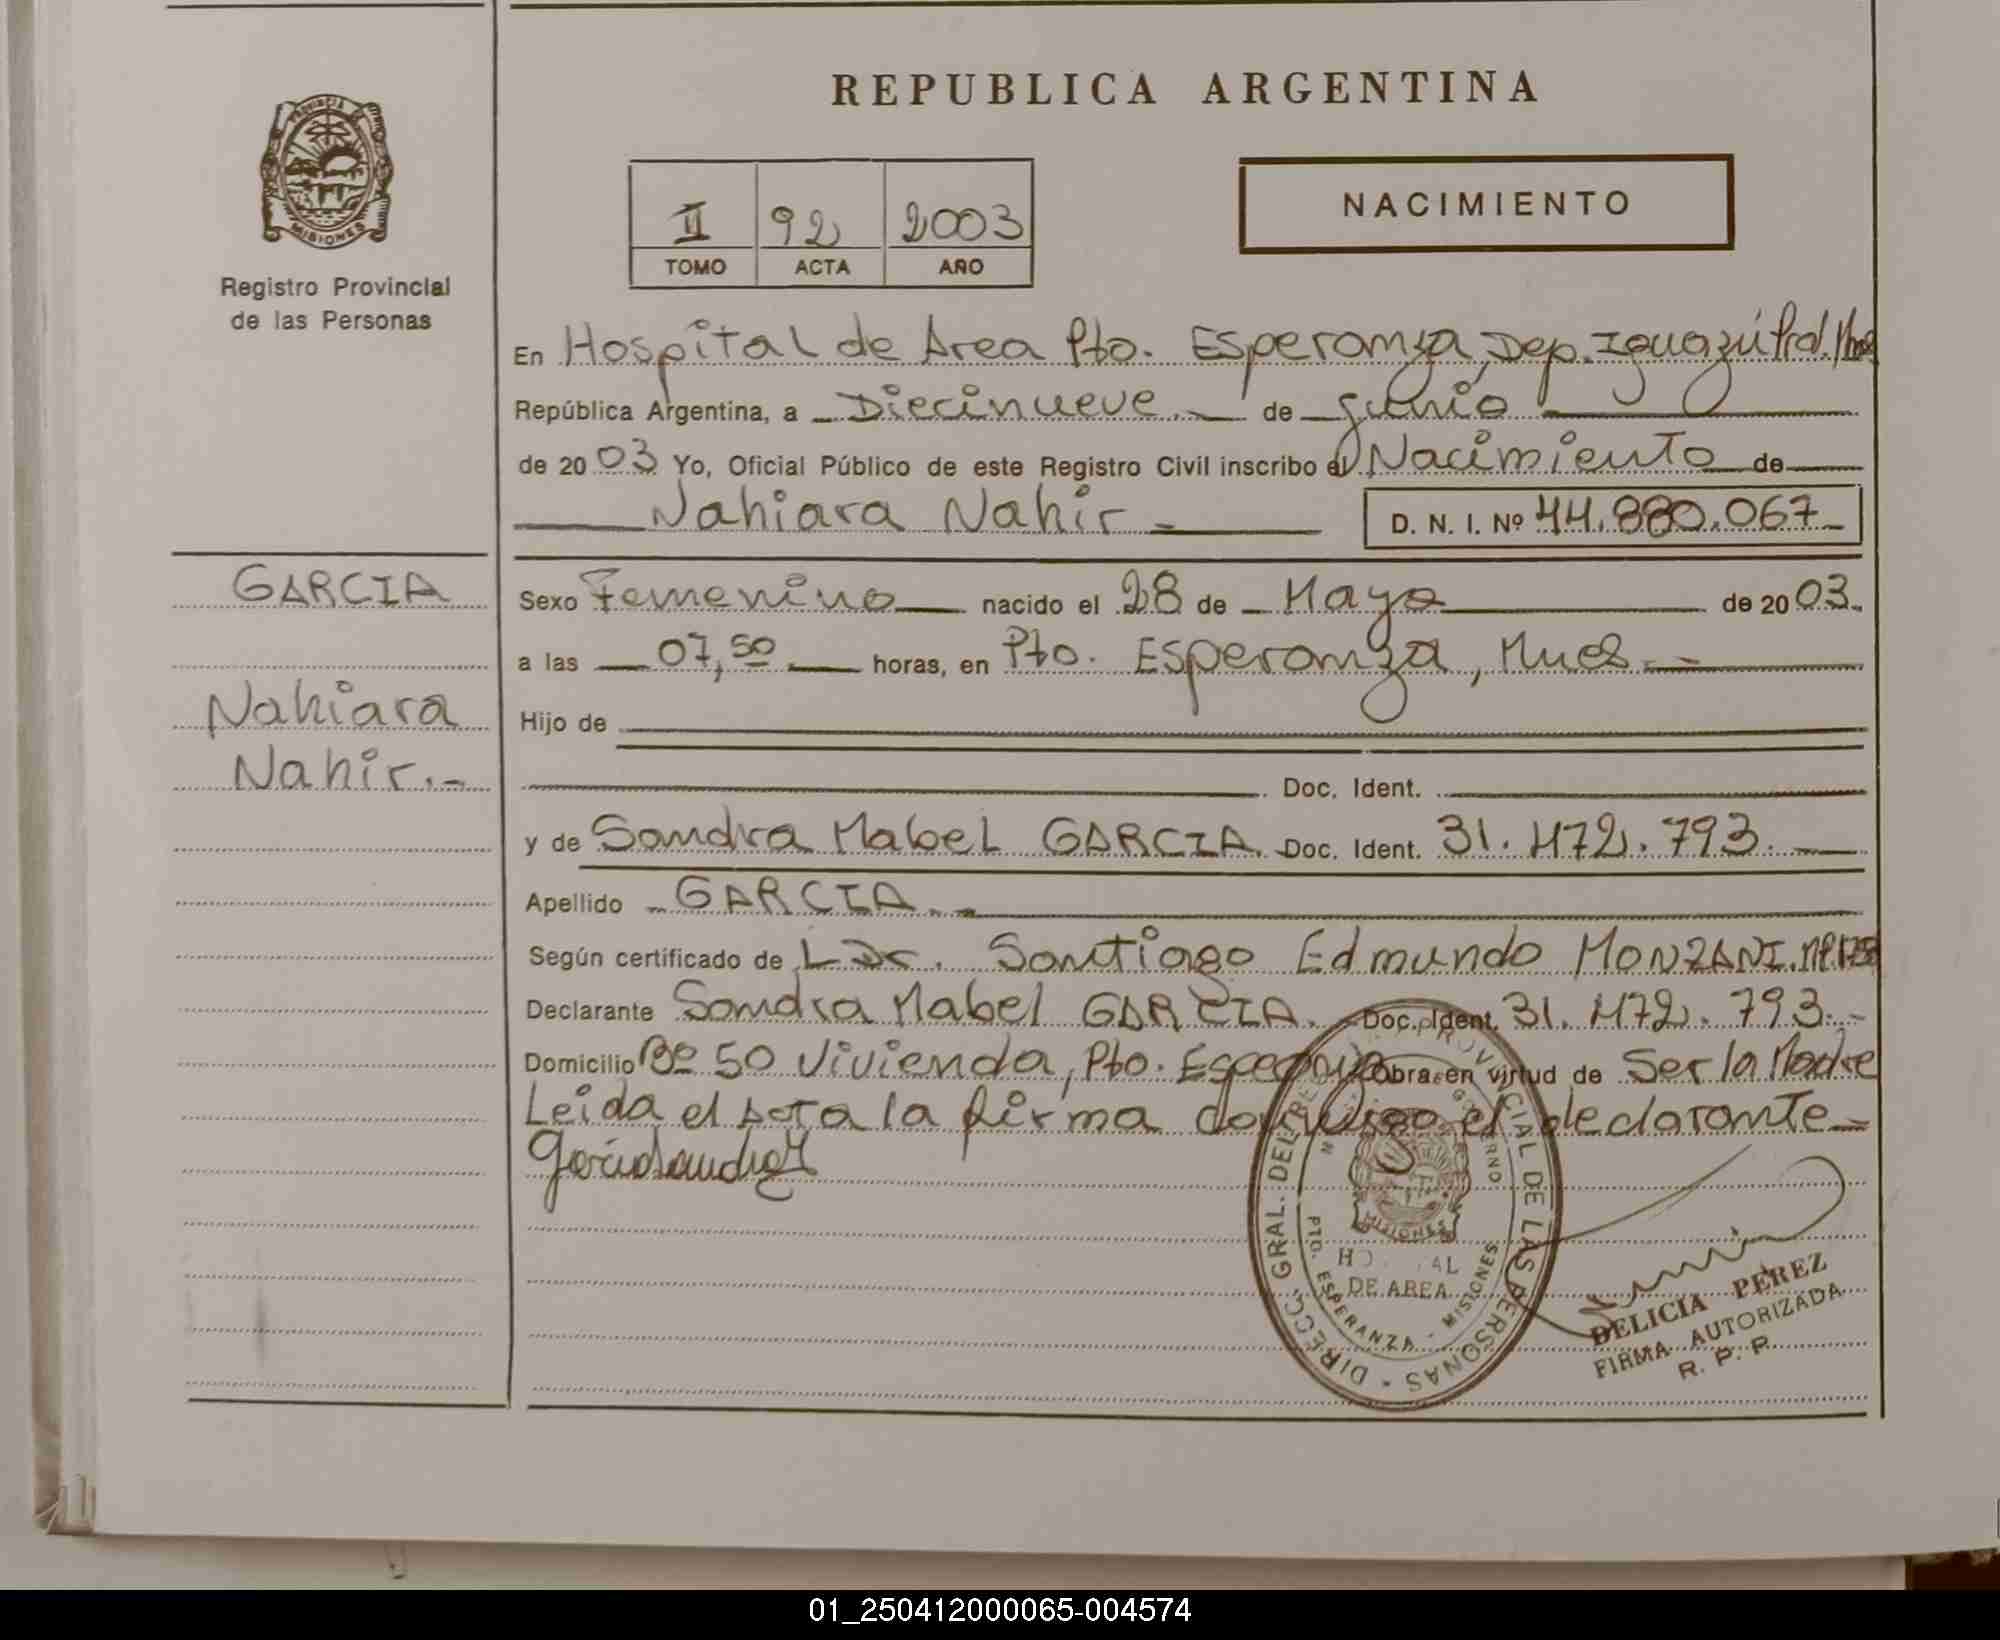 REPUBLICA ARGENTINA
PROVINCIA DE
MISIONES
Registro Provincial
de las Personas
II 92 2003
TOMO ACTA AÑO
NACIMIENTO
En Hospital de Area Pto. Esperanza, Dep. Iguazú
República Argentina, a Diecinueve.- de Junio
de 2003 Yo, Oficial Público de este Registro Civil inscribo el Nacimiento de
Nahiara Nahir.-
D. N. I. Nº 44.880.067
GARCIA
Nahiara
Nahir.-
Sexo Femenino nacido el 28 de Mayo de 2003.
a las 07,50 horas, en Pto. Esperanza, Mnes.-
Hijo de
Doc. Ident.
y de Sandra Mabel GARCIA. Doc. Ident. 31.472.793.
Apellido GARCIA.-
Según certificado de Dr. Santiago Edmundo MONZANI.
Declarante Sandra Mabel GARCIA. Doc. Ident. 31.472.793.-
Domicilio Bº 50 Vivienda, Pto. Esperanza Obra en virtud de Ser la Madre
Leida el acta la firma conmigo el declarante
Garcia Sandra M
DIRECC. GRAL. DEL REG. PROVINCIAL DE LAS PERSONAS
GOBIERNO
MISIONES
DE AREA
PTO. ESPERANZA - MISIONES
DELICIA PEREZ
FIRMA AUTORIZADA
R. P. P.
01_250412000065-004574